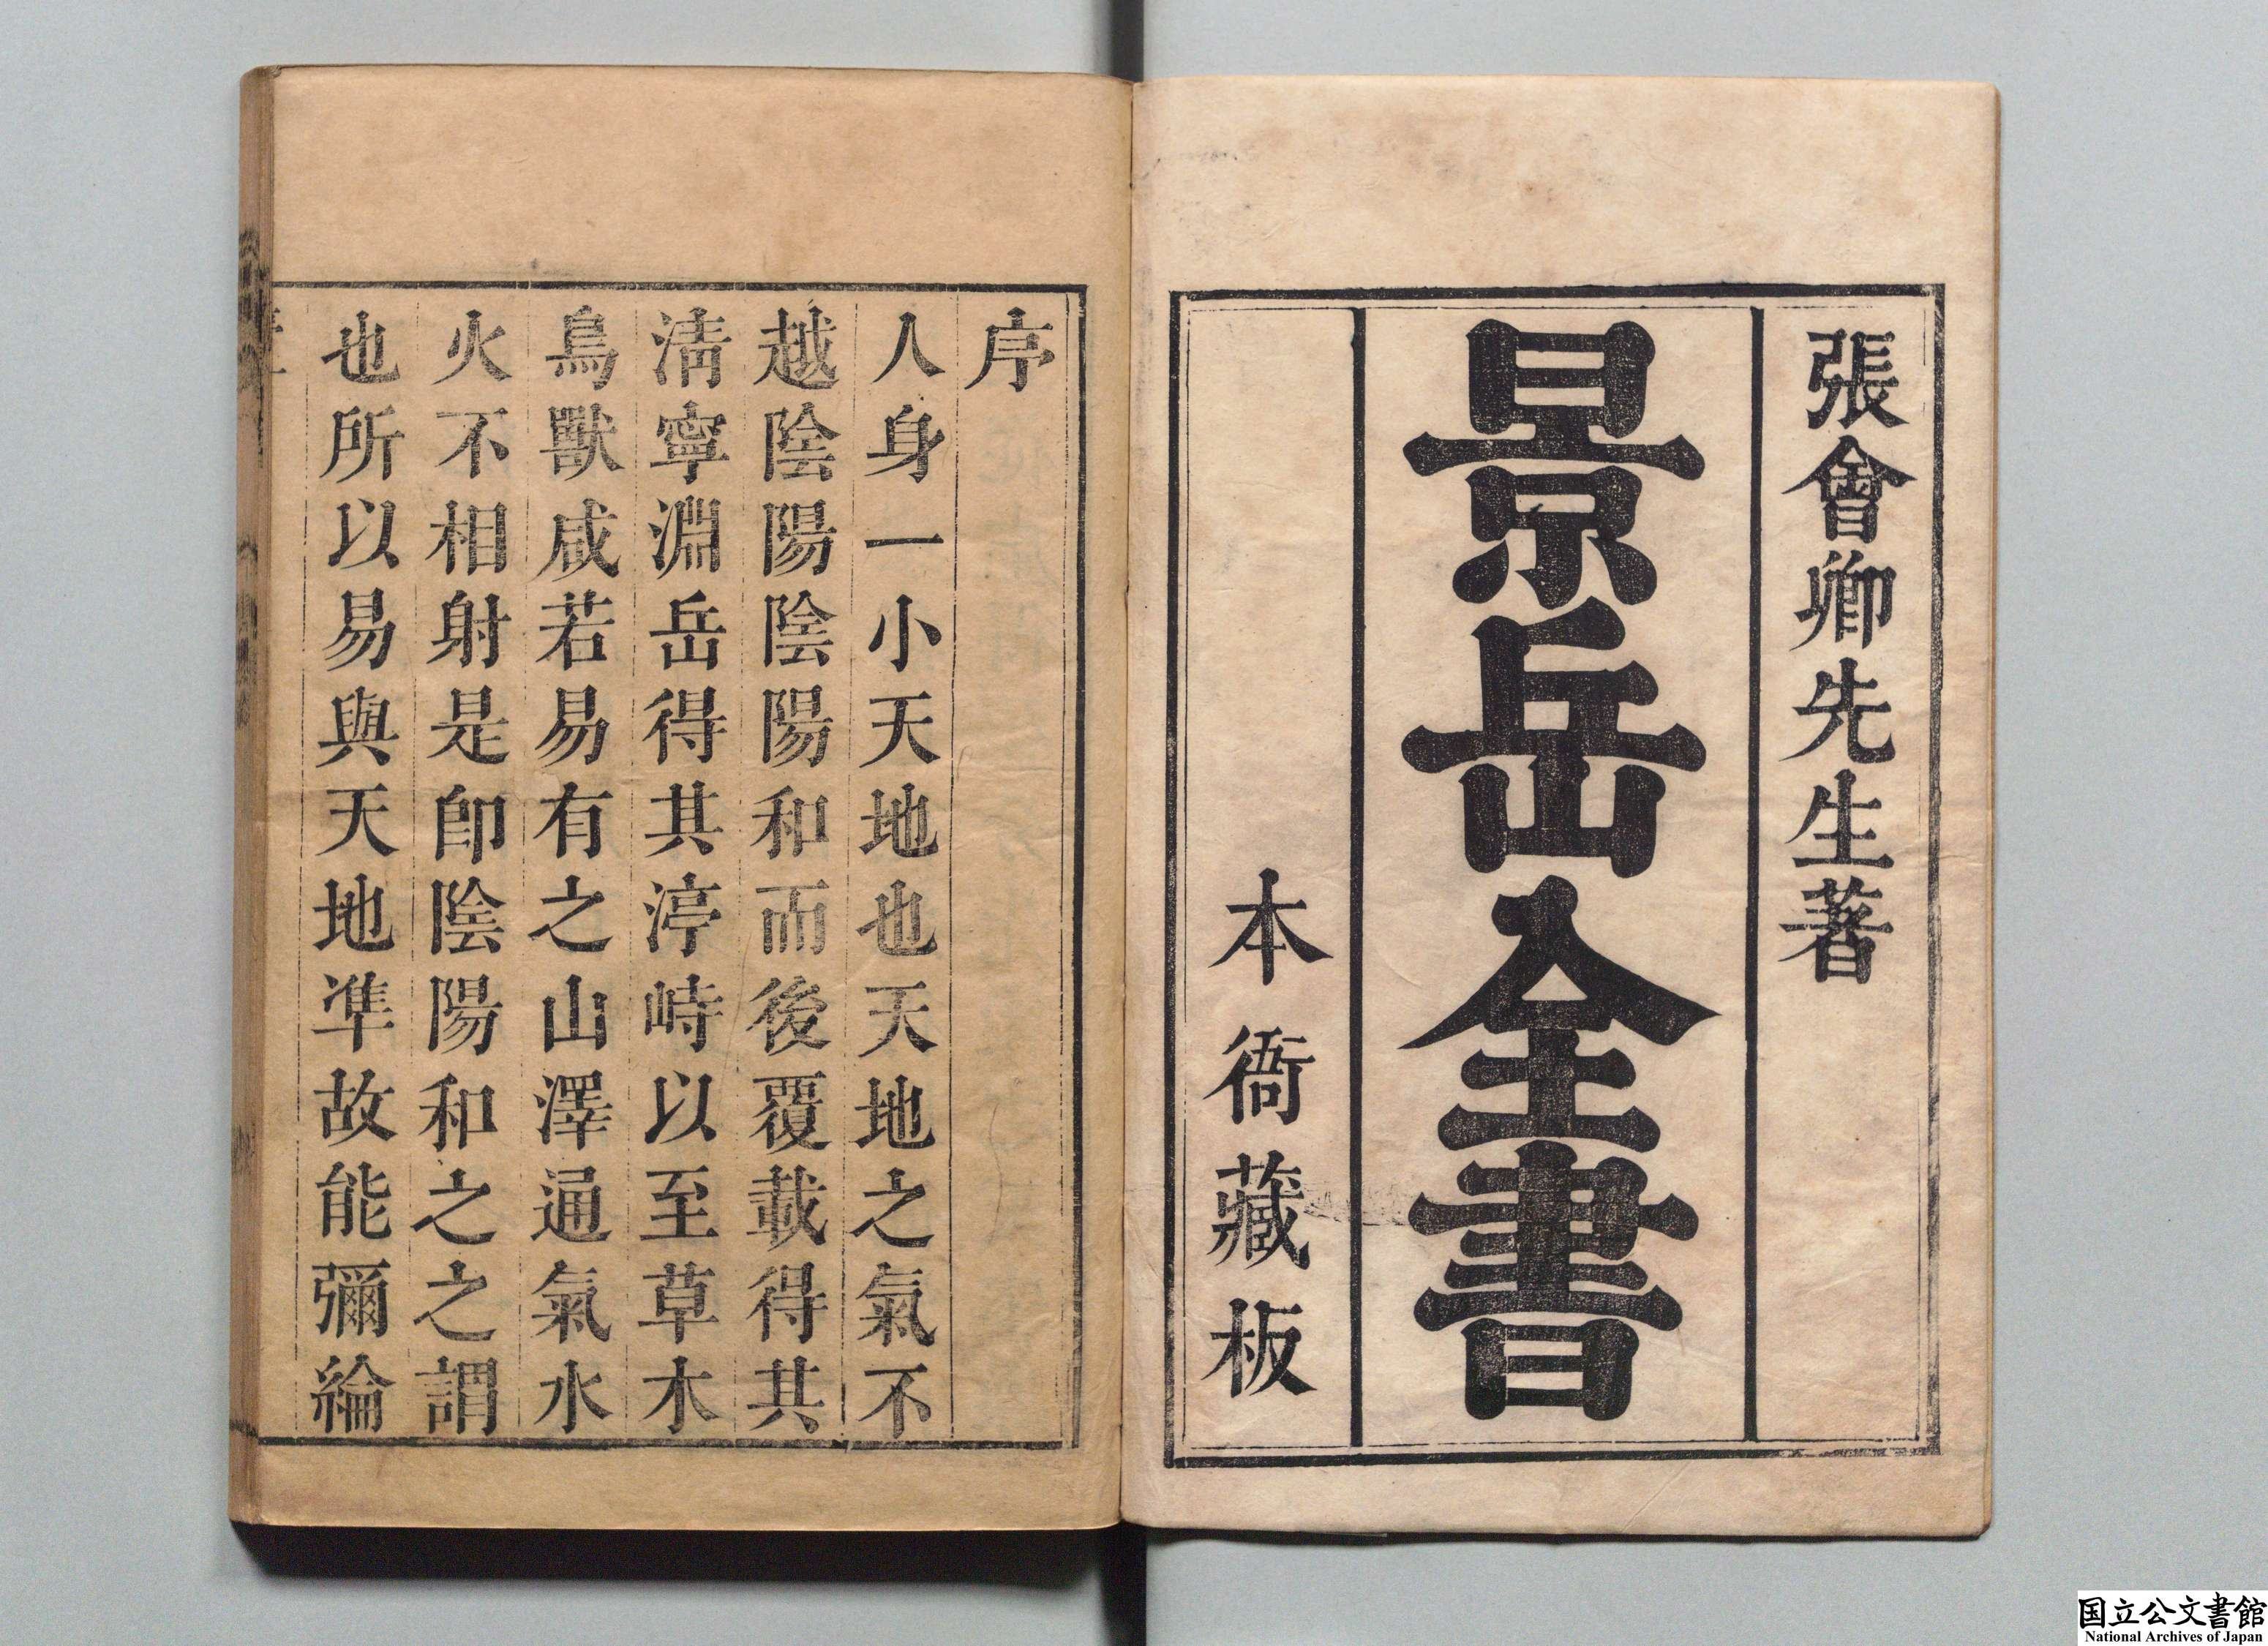 張會卿先生著
景岳全書
本衙藏板
序
人身一小天地也天地之氣不
越陰陽陰陽和而後覆載得其
淸寧淵岳得其渟峙以至草木
鳥獸咸若易有之山澤通氣水
火不相射是卽陰陽和之之謂
也所以易與天地準故能彌綸
国立公文書館
National Archives of Japan